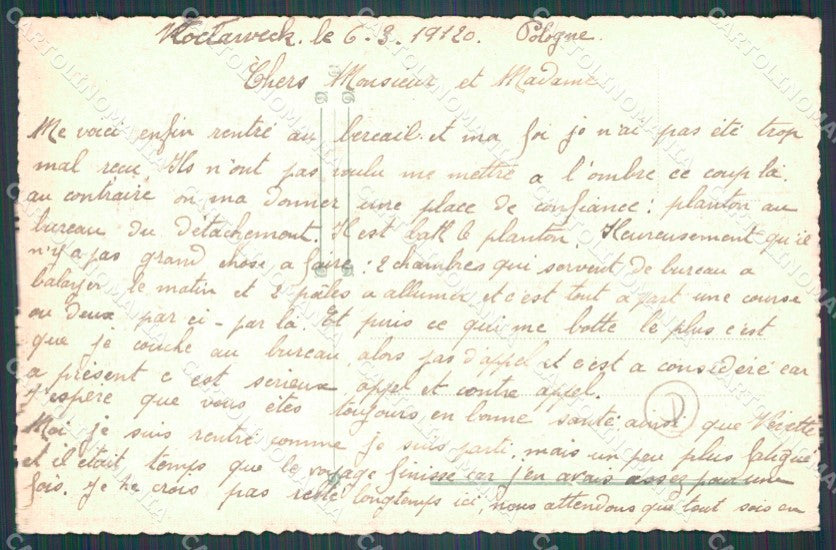 Wloclaweck. le 6-3-19120. Pologne.
Chers Monsieur et Madame
Me voici enfin rentré au bercail. et ma foi je n'ai pas été trop
mal recu, Ils n'ont pas voulu me mettre a l'ombre ce coup la.
au contraire on ma donner une place de confiance: planton au
bureau du détachement. Il est le planton Heureusement qu'il
n'y a pas grand chose a faire: 2 chambres qui servent de bureau a
balayer le matin et 2 pöeles a allumer et c'est tout a part une course
ou deux par ci-par la. Et puis ce qui me botte le plus c'est
que je couche au bureau, alors pas d'appel et c'est a considéré car
a présent c est serieux appel et contre appel.
J'espère que vous êtes toujours en bonne santé, ainsi que
Moi je suis rentré comme je suis parti, mais un peu plus fatigué
et il était temps que le voyage finisse car j'en avais assez pour une
fois. Je ne crois pas resté longtemps ici, nous attendons que tout sois en
CARTOLINOMANIA